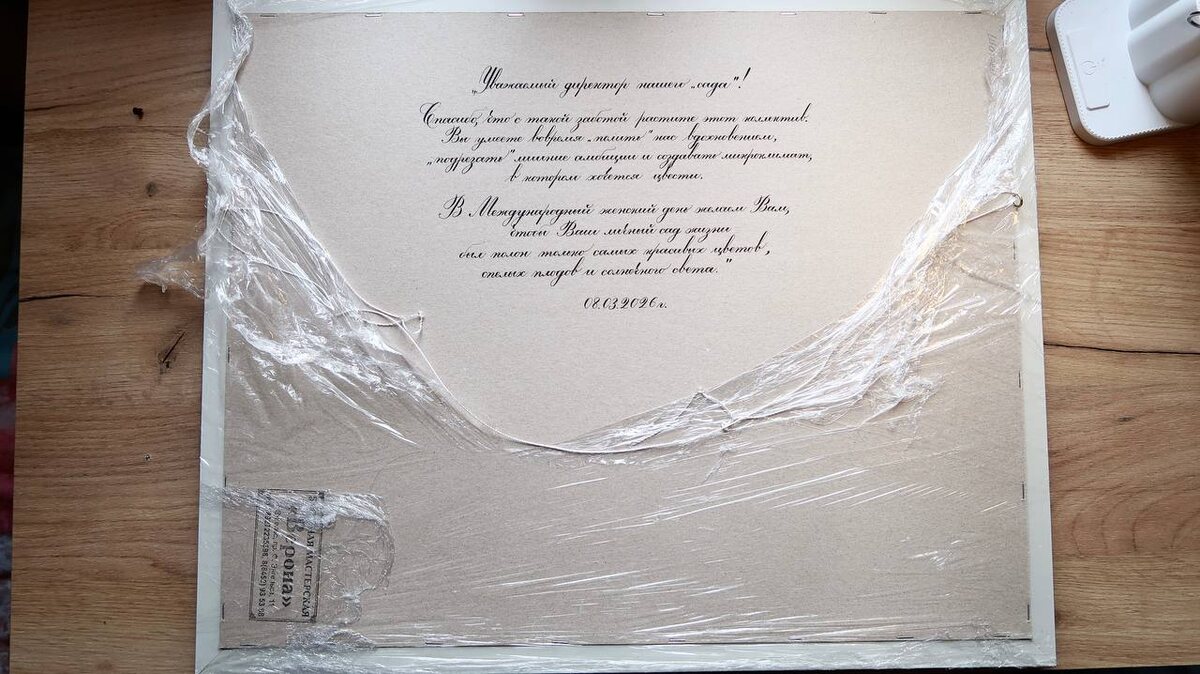 „Уважаемый директор нашего „сада"!
Спасибо, что с такой заботой растите этот коллектив.
Вы умеете вовремя „полить" нас вдохновением,
„подрезать" лишние амбиции и создавать микроклимат,
в котором хочется цвести.
В Международный женский день желаем Вам,
чтобы Ваш личный сад жизни
был полон только самых красивых цветов,
спелых плодов и солнечного света."
08.03.2026г.
МАСТЕРСКАЯ
рона»